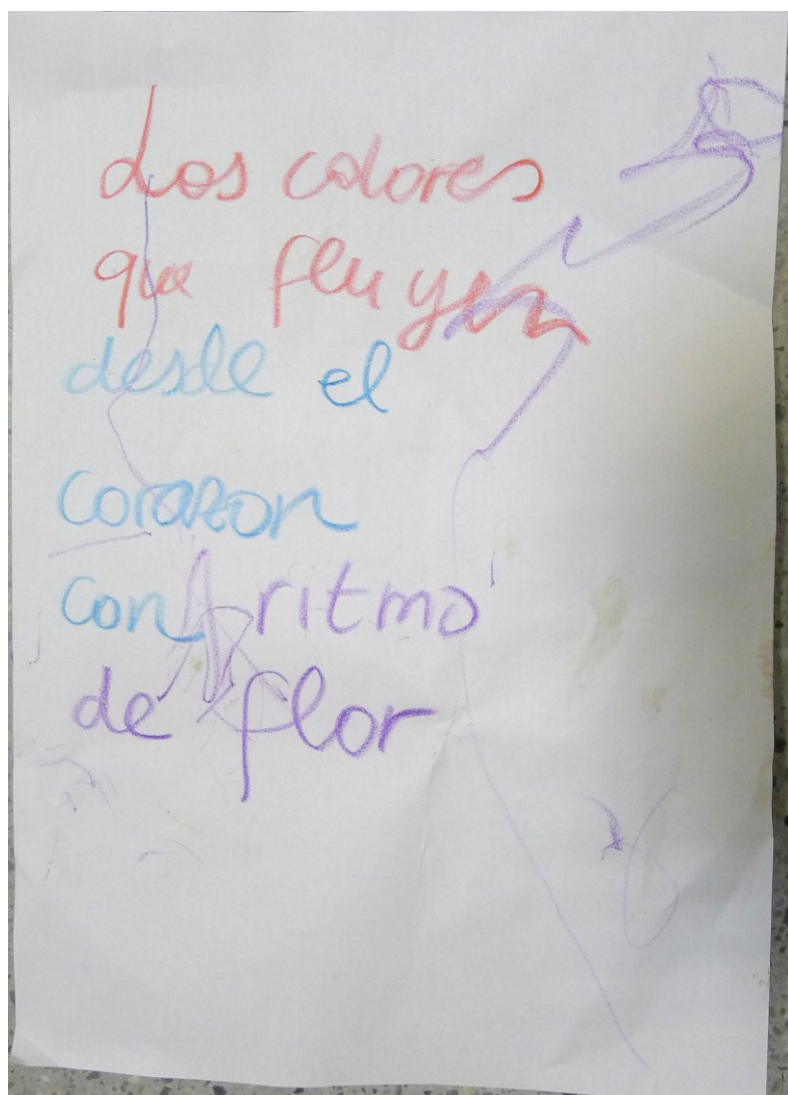 Los colores
que fluyen
desde el
corazon
con ritmo
de flor